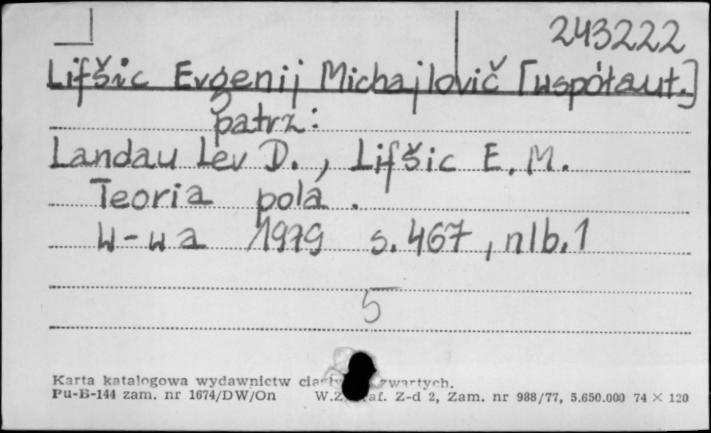 243222
Lifšic Evgenij Michajlovič [współaut.]
patrz:
Landau Lev D., Lifšic E. M.
Teoria pola.
W-wa 1979 s. 467, nlb. 1
5
Karta katalogowa wydawnictw
Pu-B-144 zam. nr 1674/DW/On W.Z. Z-d 2, Zam. nr 988/77, 5.650.000 74 × 120